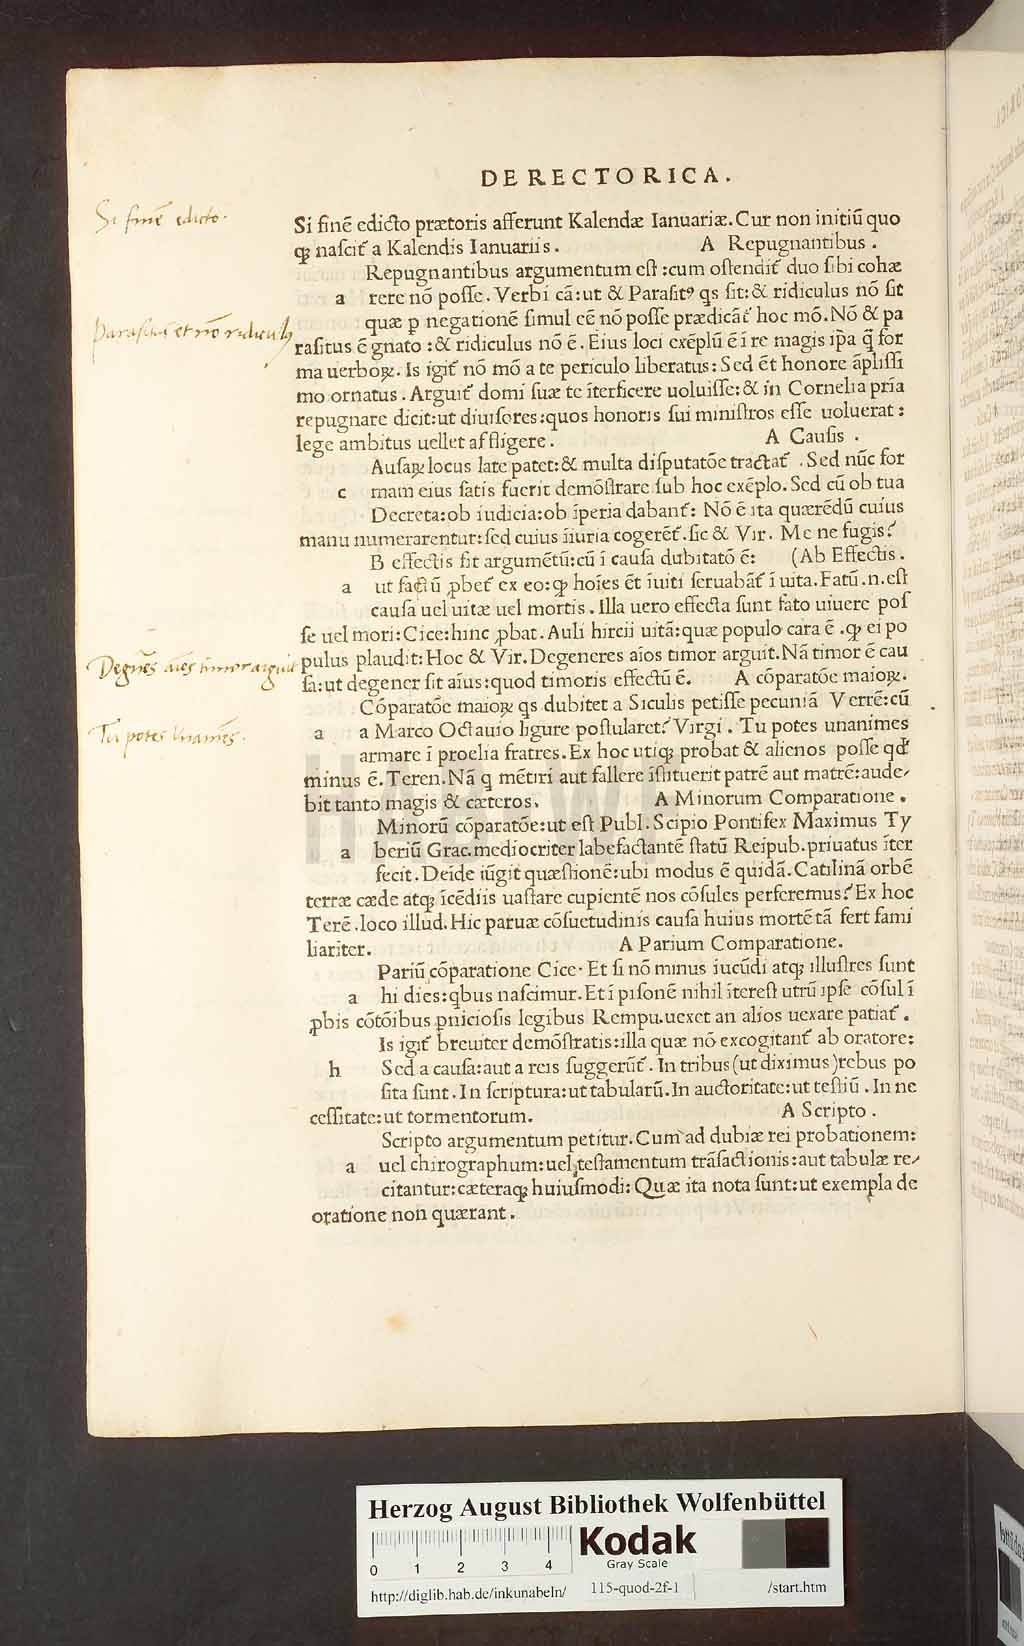 DE RECTORICA.
Si finē edicto.
Si finē edicto prætoris afferunt Kalendæ Ianuariæ. Cur non initiū quo
qꝫ nascit᷑ a Kalendis Ianuariis. A Repugnantibus.
Repugnantibus argumentum est: cum ostendit᷑ duo sibi cohæ
a rere nō posse. Verbi cā: ut & Parasitꝰ qs sit: & ridiculus nō sit
Parasitus et nō ridiculꝰ
quæ ꝑ negationē simul eē nō posse prædicāt᷑ hoc mō. Nō & pa
rasitus ē gnato: & ridiculus nō ē. Eius loci exēplū ē ī re magis ip̄a q̄̃ for
ma uerboꝝ. Is igit᷑ nō mō a te periculo liberatus: Sed ēt honore āplissi
mo ornatus. Arguit᷑ domi suæ te īterficere uoluisse: & in Cornelia pr̄ia
repugnare dicit: ut diuisores: quos honoris sui ministros esse uoluerat:
lege ambitus uellet affligere. A Causis.
Ausaꝝ locus late patet: & multa disputatōe tractat᷑. Sed nūc for
c mam eius satis fuerit demōstrare sub hoc exēplo. Sed cū ob tua
Decreta: ob iudicia: ob īperia dabant᷑: Nō ē ita quærēdū cuius
manu numerarentur: sed cuius īiuria cogerēt᷑. sic & Vir. Me ne fugis?
B effectis fit argumētū: cū ī causa dubitatō ē: (Ab Effectis.
a ut factū ꝓbet᷑ ex eo: qꝫ hoīes ēt īuiti seruabāt᷑ ī uita. Fatū .n. est
causa uel uitæ uel mortis. Illa uero effecta sunt fato uiuere pos
se uel mori: Cice: hinc ꝓbat. Auli hircii uitā: quæ populo cara ē. qꝫ ei po
Degn̄es aīes timor arguit
pulus plaudit: Hoc & Vir. Degeneres aīos timor arguit. Nā timor ē cau
sa: ut degener sit aīus: quod timoris effectū ē. A cōparatōe maioꝝ.
Cōparatōe maioꝝ qs dubitet a Siculis petisse pecuniā Verrē: cū
Tu potes Unaīmes.
a a Marco Octauio ligure postularet? Virgi. Tu potes unanimes
armare ī proelia fratres. Ex hoc utiqꝫ probat & alienos posse qd᷑
minus ē. Teren. Nā q mētiri aut fallere īstituerit patrē aut matrē: aude-
bit tanto magis & cæteros. A Minorum Comparatione.
Minorū cōparatōe: ut est Publ. Scipio Pontifex Maximus Ty
a beriū Grac. mediocriter labefactantē statū Reipub. priuatus īter
fecit. Deīde iūgit quæstionē: ubi modus ē quidā. Catilinā orbē
terræ cæde atqꝫ īcēdiis uastare cupientē nos cōsules perferemus? Ex hoc
Terē. loco illud. Hic paruæ cōsuetudinis causa huius mortē tā fert fami
liariter. A Parium Comparatione.
Pariū cōparatione Cice. Et si nō minus iucūdi atqꝫ illustres sunt
a hi dies: qbus nascimur. Et ī pisonē nihil īterest utrū ipse cōsul ī
ꝓbis cōtōibus ꝑniciosis legibus Rempu. uexet an alios uexare patiat᷑.
Is igit᷑ breuiter demōstratis: illa quæ nō excogitant᷑ ab oratore:
h Sed a causa: aut a reis suggerūt᷑. In tribus (ut diximus) rebus po
sita sunt. In scriptura: ut tabularū. In auctoritate: ut testiū. In ne
cessitate: ut tormentorum. A Scripto.
Scripto argumentum petitur. Cum ad dubiæ rei probationem:
a uel chirographum: uel testamentum trāsactionis: aut tabulæ re-
citantur: cæteraqꝫ huiusmodi: Quæ ita nota sunt: ut exempla de
oratione non quærant.
HAB WF
Herzog August Bibliothek Wolfenbüttel
0 1 2 3 4
Kodak
Gray Scale
http://diglib.hab.de/inkunabeln/ 115-quod-2f-1 /start.htm